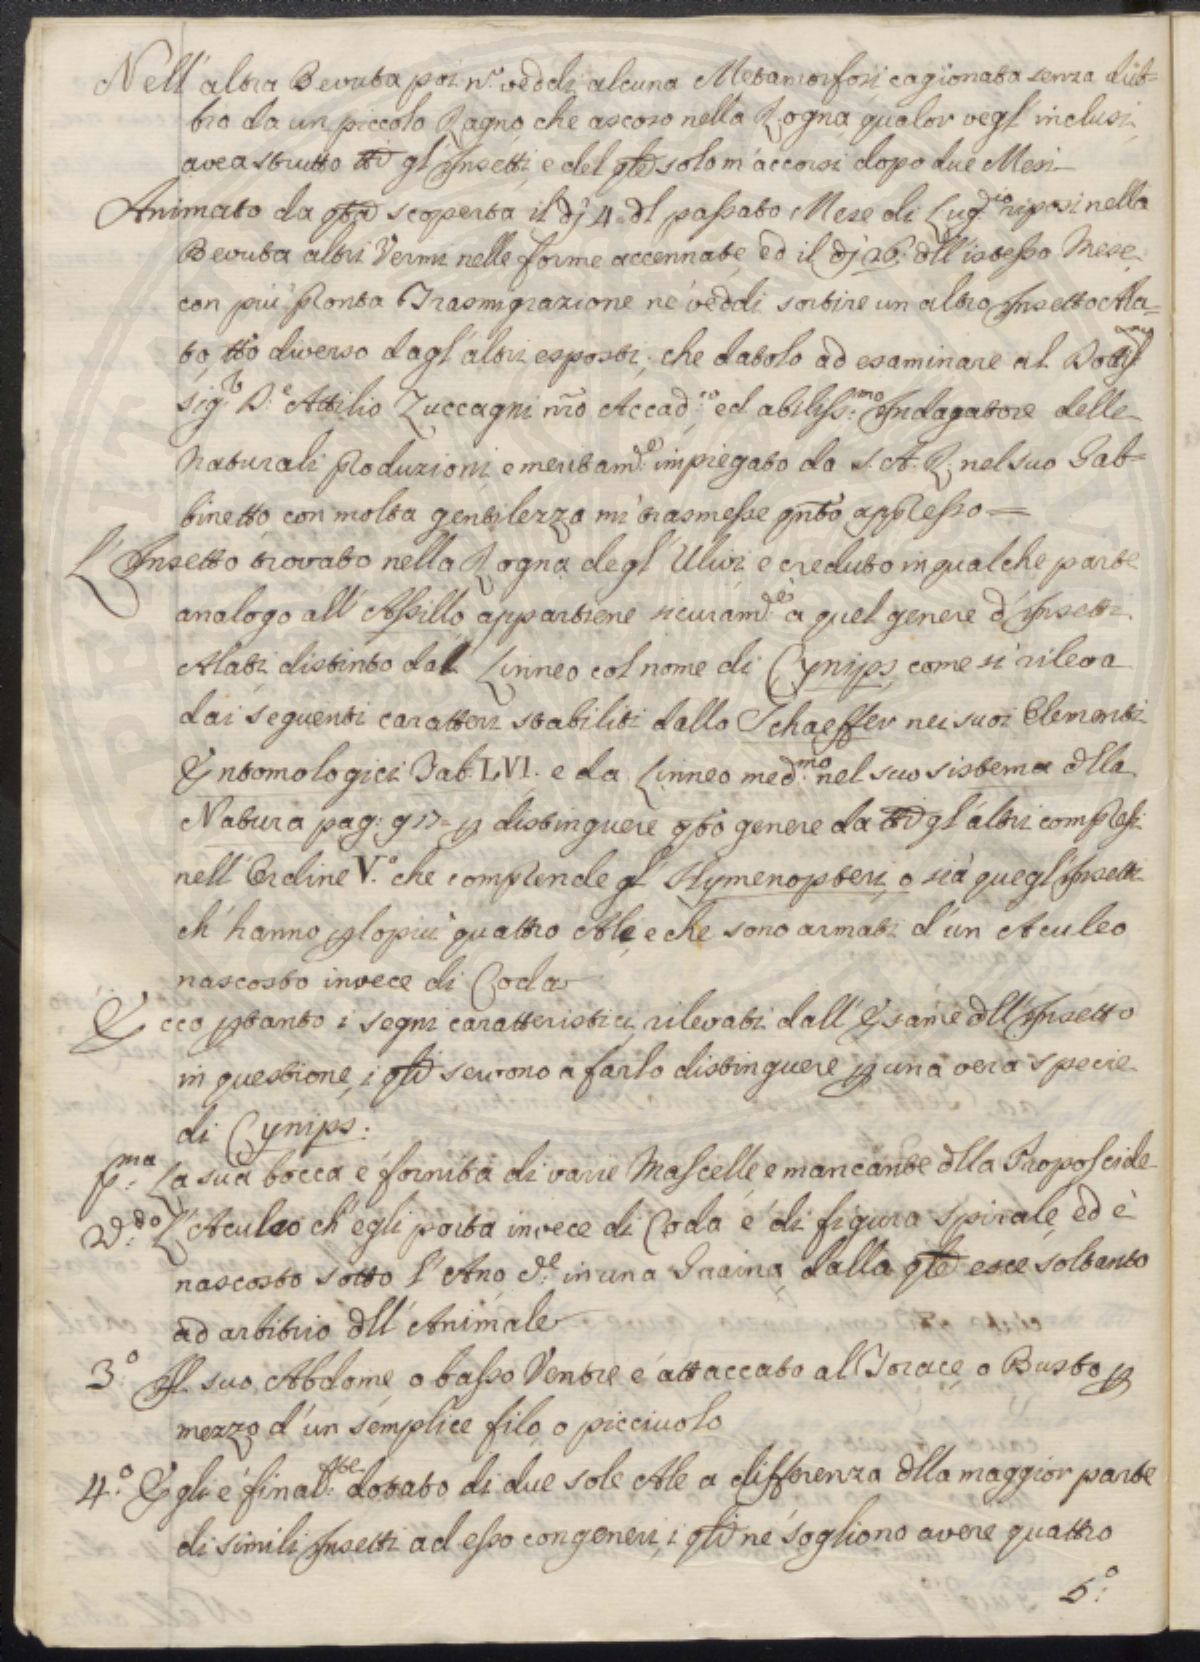 Nell'altra Bevuta poi n.' veddi alcuna Metamorfosi, cagionata senza dub=
bio da un piccolo Ragno che ascoso nella Rogna qualor vegl'inclusi,
avea strutto tti gl'Insetti, e del qle solo m'accorsi dopo due Mesi
Animato da qta scoperta il dj 4. dl passato Mese di Lug.lio riposi nella
Bevuta altri Vermi nelle forme accennate, ed il dj 26. dll'istesso Mese,
con più pronta Trasmigrazione ne veddi sortire un altro Insetto Ala=
to, tto diverso dagl'altri esposti, che datolo ad esaminare al Dott.
Sig.r D.e Attilio Zuccagni nro Accad.co ed abiliss.mo Indagatore delle
Naturali Produzioni e meritam.te impiegato da S. A. R. nel suo Gab=
binetto con molta gentilezza mi trasmesse qnto appresso =
L'Insetto trovato nella Rogna degl'Ulivi e creduto in qualche parte
analogo all'Assillo appartiene sicuram.te a quel genere d'Insetti
Alati distinto dal Linneo col nome di Cynips, come si rileva
dai seguenti caratteri stabiliti dallo Schaeffer nei suoi Elementi
Entomologici Tab. LVI. e da Linneo med.mo nel suo sistema dlla
Natura pag: 917 = p distinguere qto genere da tti gl'altri compresi
nell'Ordine V.o che comprende gl'Hymenopteri, o sia quegl'Insetti
ch'hanno plopiu' quattro Ale, e che sono armati d'un Aculeo
nascosto invece di Coda
Ecco ptanto i segni caratteristici, rilevati dall'Esame dll'Insetto
in questione, i qli servono a farlo distinguere p una vera specie
di Cynips:
P.ma La sua bocca e' fornita di varie Mascelle e mancante dlla Proposcide
2.do L'Aculeo ch'egli porta invece di Coda e' di figura spirale, ed è
nascosto sotto l'Ano d.e in una Guaina, dalla qle esce soltanto
ad arbitrio dll'Animale
3.o Il suo Abdome o basso Ventre e' attaccato al Torace, o Busto p
mezzo d'un semplice filo, o picciuolo
4.o Egli e' final.te dotato di due sole Ale a differenza dlla maggior parte
di simili Insetti ad esso congeneri, i qli ne sogliono avere quattro
5.o